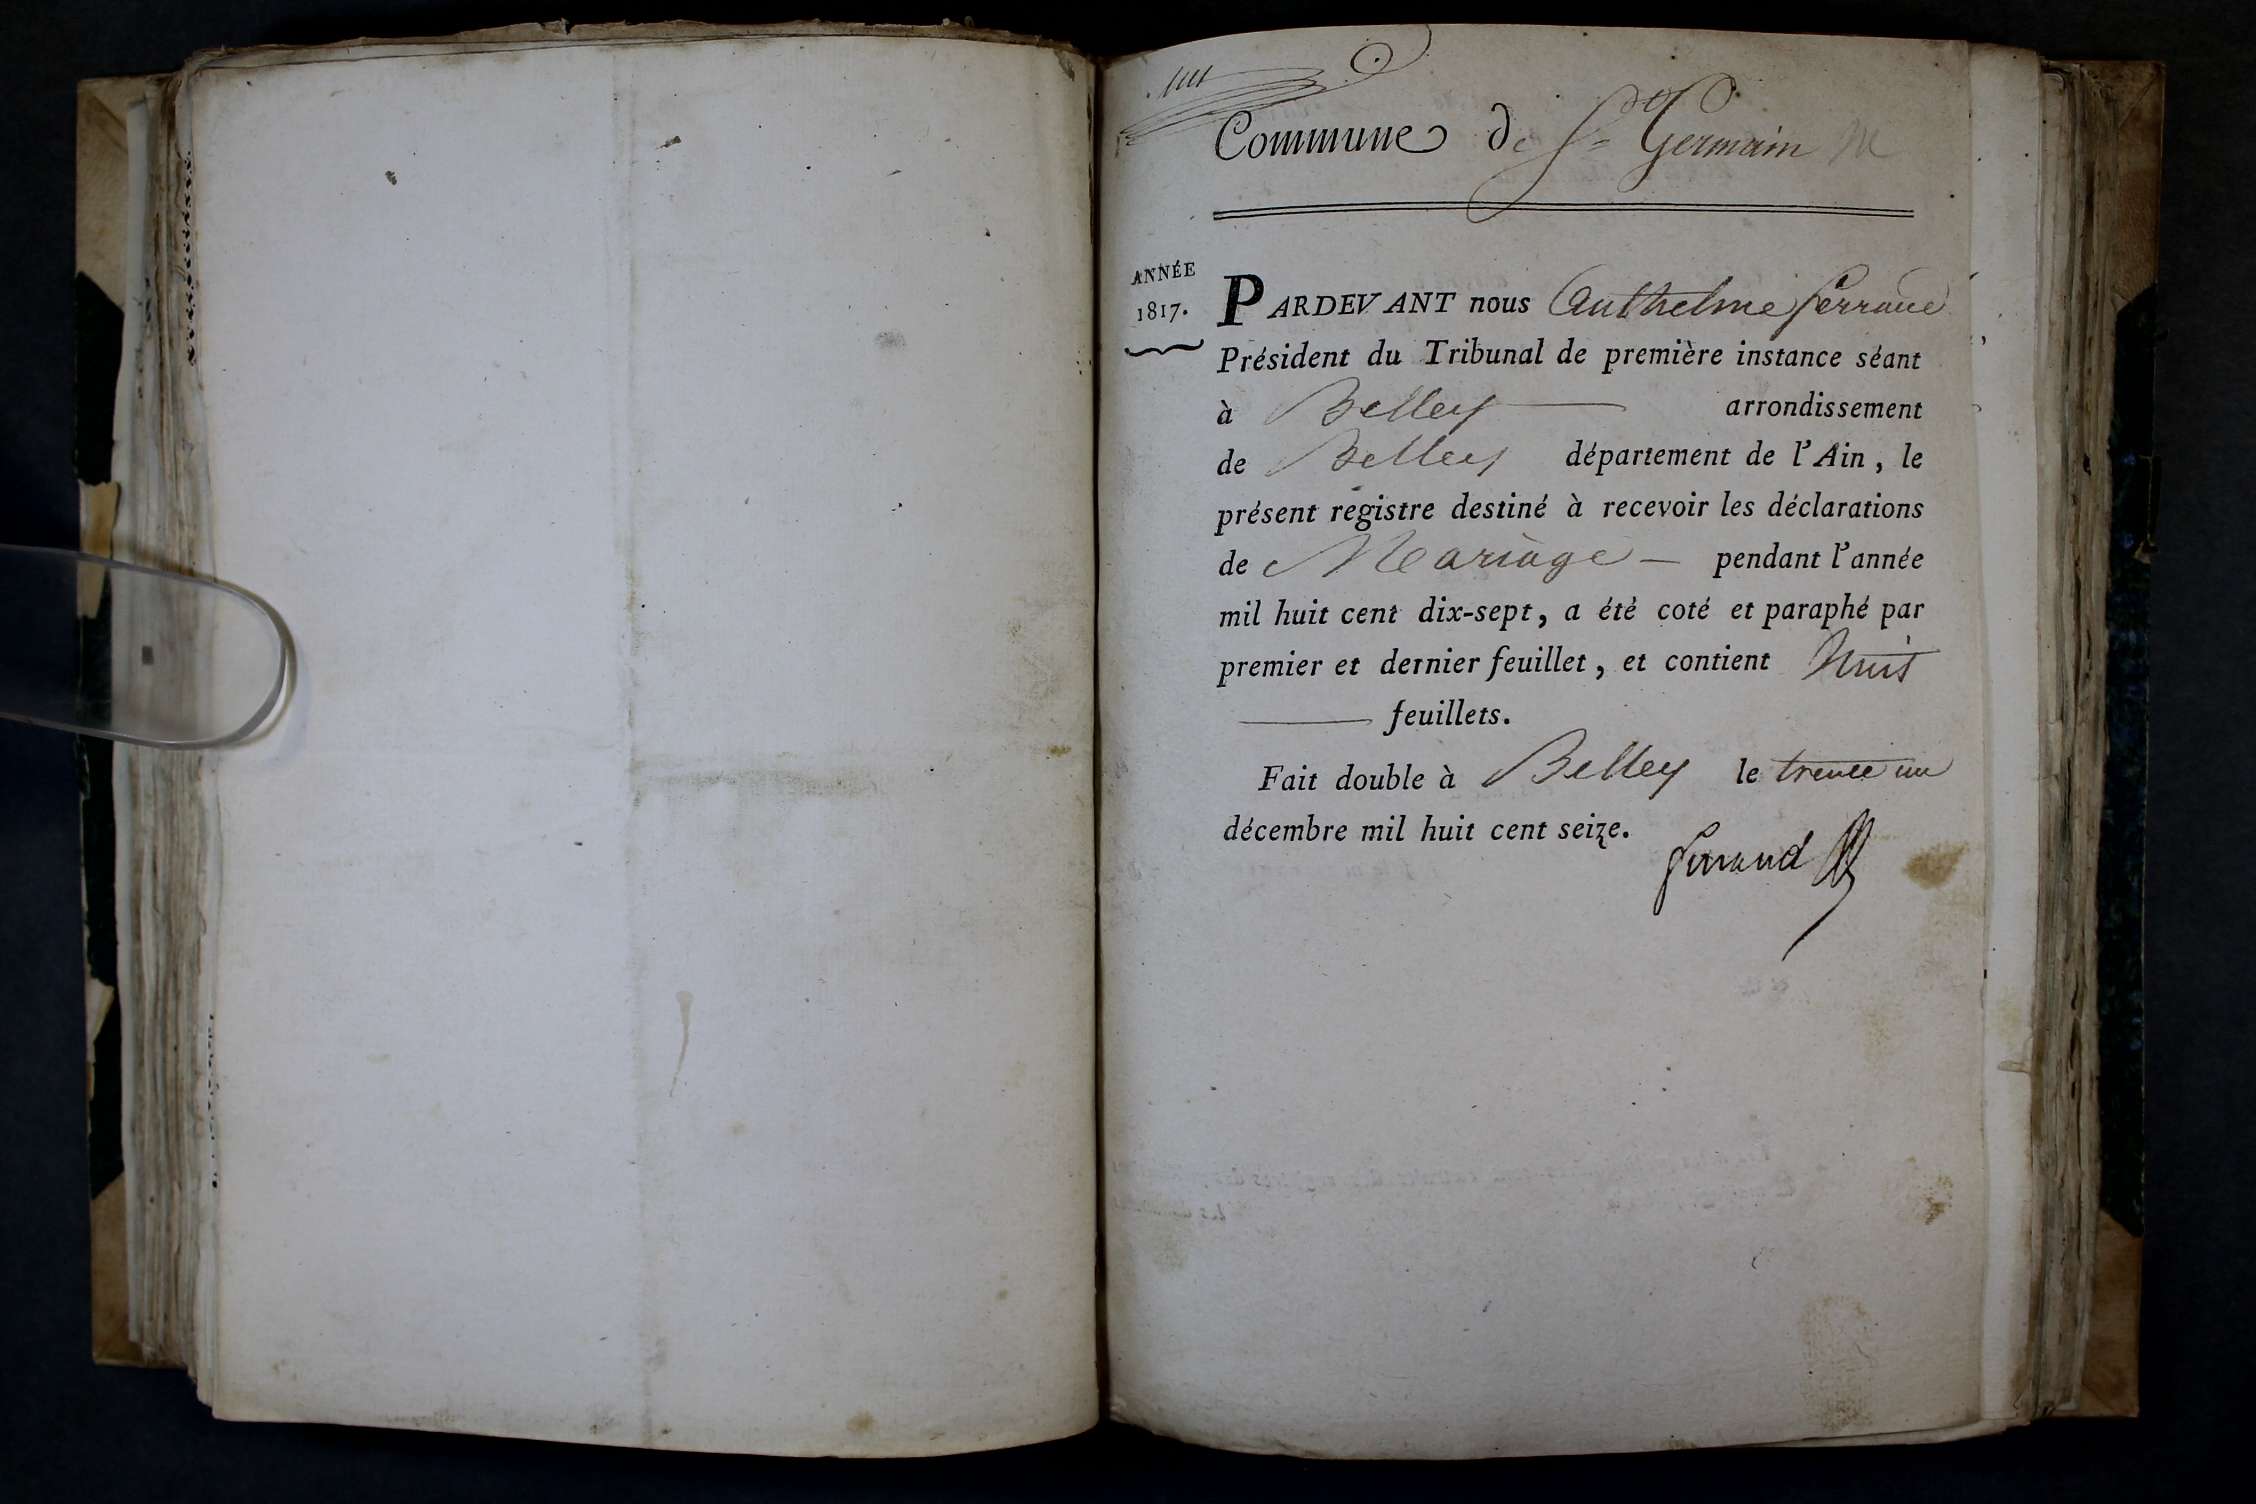 Commune de St Germain M
ANNÉE
1817.
PARDEVANT nous Anthelme ferrand
Président du Tribunal de première instance séant
à Belley arrondissement
de Belley département de l'Ain, le
présent registre destiné à recevoir les déclarations
de Mariage — pendant l'année
mil huit cent dix-sept, a été coté et paraphé par
premier et dernier feuillet, et contient huit
feuillets.
Fait double à Belley le trente un
décembre mil huit cent seize.
ferrand